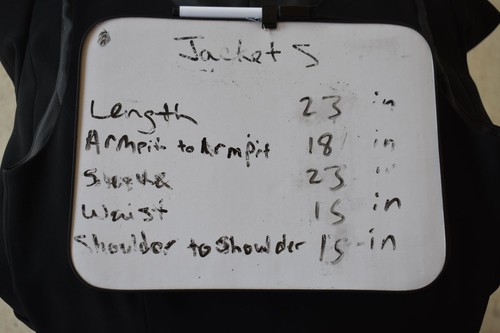 Jacket S
Length 23 in
Armpit to Armpit 18 in
Sleeve 23 in
Waist 15 in
Shoulder to Shoulder 15 in